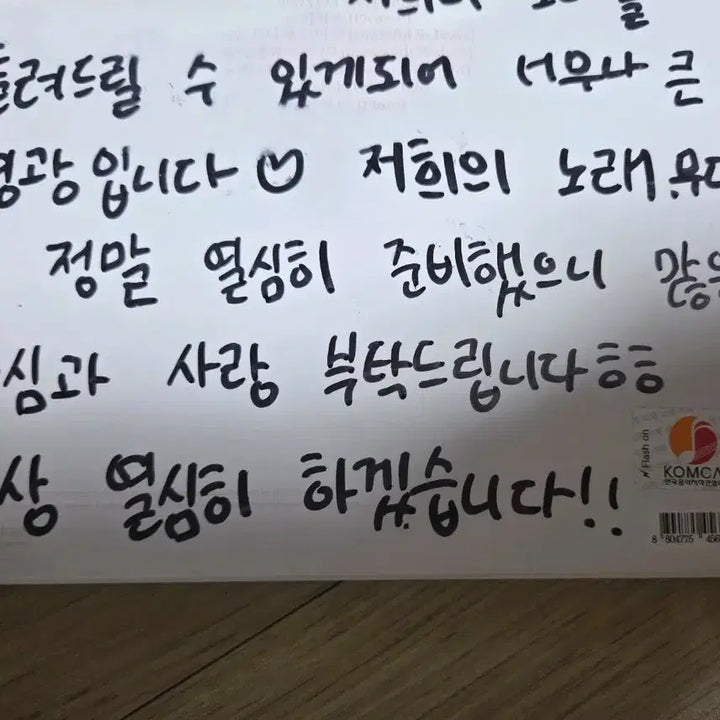 들려드릴 수 있게되어 너무나 큰
영광입니다♡ 저희의 노래 무대
정말 열심히 준비했으니 많은
심과 사랑 부탁드립니다ㅎㅎ
상 열심히 하겠습니다!!
Flash on
KOMCA
8 804775 456